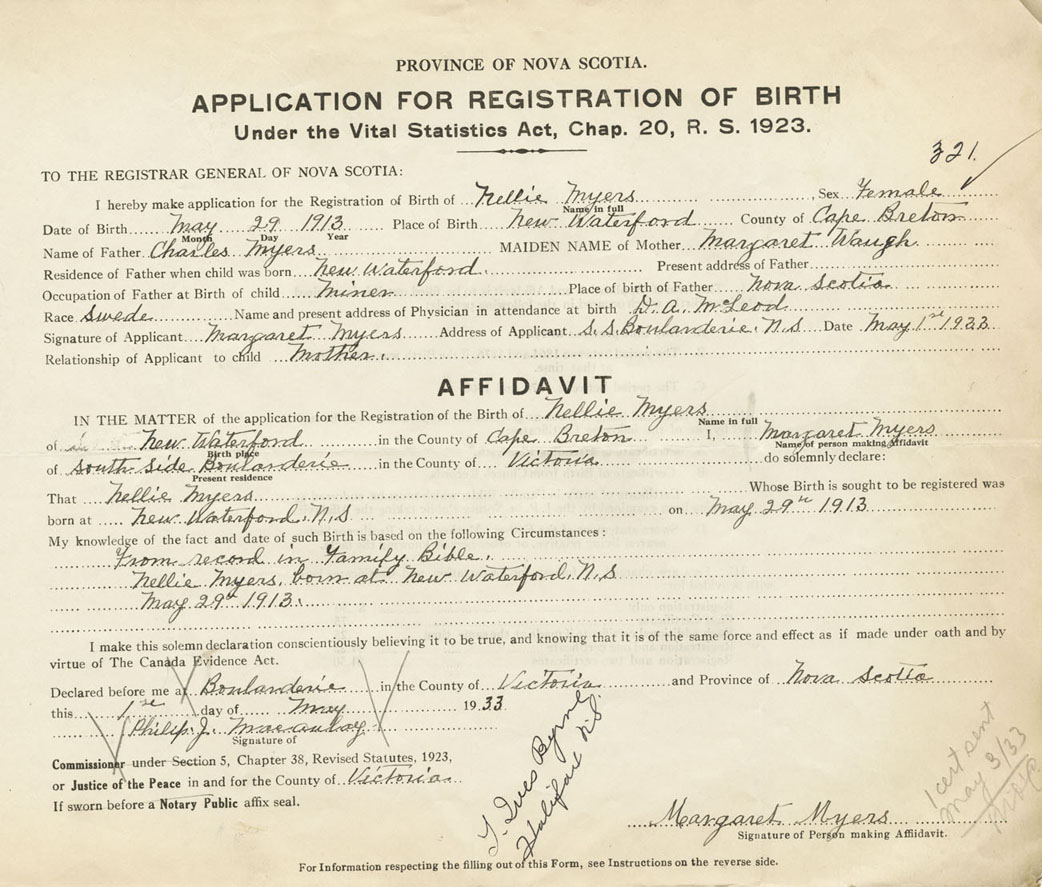 PROVINCE OF NOVA SCOTIA.
APPLICATION FOR REGISTRATION OF BIRTH
Under the Vital Statistics Act, Chap. 20, R. S. 1923.
321.
TO THE REGISTRAR GENERAL OF NOVA SCOTIA:
I hereby make application for the Registration of Birth of Nellie Myers, Sex Female
Name in full
Date of Birth May 29 1913 Place of Birth New Waterford County of Cape Breton
Month Day Year
Name of Father Charles Myers MAIDEN NAME of Mother Margaret Waugh
Residence of Father when child was born New Waterford. Present address of Father
Occupation of Father at Birth of child miner Place of birth of Father Nova Scotia
Race Swede Name and present address of Physician in attendance at birth D. A. McLeod
Signature of Applicant Margaret Myers Address of Applicant S. S. Boulanderie. N.S Date May 1st 1933
Relationship of Applicant to child Mother.
AFFIDAVIT
IN THE MATTER of the application for the Registration of the Birth of Nellie Myers
Name in full
of New Waterford in the County of Cape Breton I, Margaret Myers
Birth place Name of person making Affidavit
of South Side Boulanderie in the County of Victoria do solemnly declare:
Present residence
That Nellie Myers Whose Birth is sought to be registered was
born at New Waterford, N.S on May 29th 1913
My knowledge of the fact and date of such Birth is based on the following Circumstances:
From record in Family Bible.
Nellie Myers, born at New Waterford, N.S
May 29th 1913.
I make this solemn declaration conscientiously believing it to be true, and knowing that it is of the same force and effect as if made under oath and by
virtue of The Canada Evidence Act.
Declared before me at Boulanderie in the County of Victoria and Province of Nova Scotia
this 1st day of May 1933.
Philip. J. Macaulay
Signature of
Commissioner under Section 5, Chapter 38, Revised Statutes, 1923,
or Justice of the Peace in and for the County of Victoria
If sworn before a Notary Public affix seal.
Ives Byrne
Halifax N.S.
1 cert sent
May 3/33
Margaret Myers
Signature of Person making Affidavit.
For Information respecting the filling out of this Form, see Instructions on the reverse side.